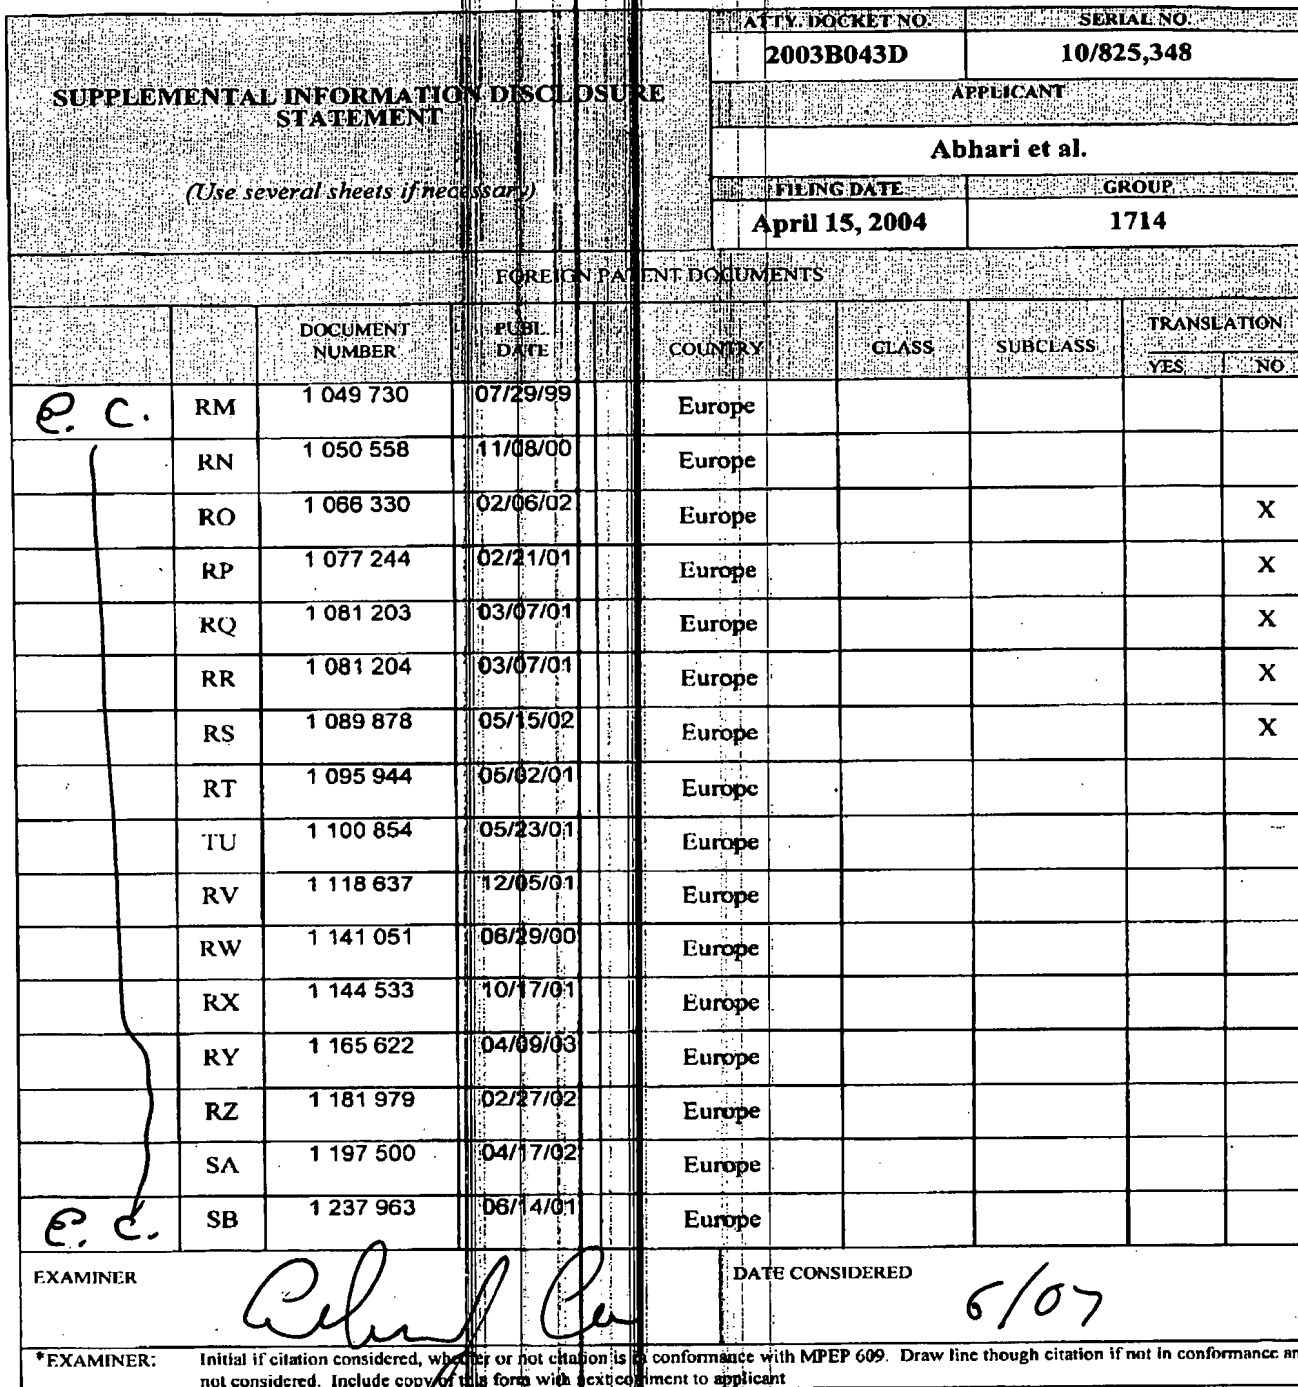 ATTY. DOCKET NO. SERIAL NO.
2003B043D 10/825,348
SUPPLEMENTAL INFORMATION DISCLOSURE
STATEMENT
APPLICANT
Abhari et al.
(Use several sheets if necessary)
FILING DATE GROUP
April 15, 2004 1714
FOREIGN PATENT DOCUMENTS
DOCUMENT NUMBER PUBL. DATE COUNTRY CLASS SUBCLASS TRANSLATION
YES NO
e. c. RM 1 049 730 07/29/99 Europe
RN 1 050 558 11/08/00 Europe
RO 1 066 330 02/06/02 Europe X
RP 1 077 244 02/21/01 Europe X
RQ 1 081 203 03/07/01 Europe X
RR 1 081 204 03/07/01 Europe X
RS 1 089 878 05/15/02 Europe X
RT 1 095 944 05/02/01 Europe
TU 1 100 854 05/23/01 Europe
RV 1 118 637 12/05/01 Europe
RW 1 141 051 06/29/00 Europe
RX 1 144 533 10/17/01 Europe
RY 1 165 622 04/09/03 Europe
RZ 1 181 979 02/27/02 Europe
SA 1 197 500 04/17/02 Europe
e. c. SB 1 237 963 06/14/01 Europe
EXAMINER DATE CONSIDERED 6/07
*EXAMINER: Initial if citation considered, whether or not citation is in conformance with MPEP 609. Draw line though citation if not in conformance an
not considered. Include copy of this form with next comment to applicant